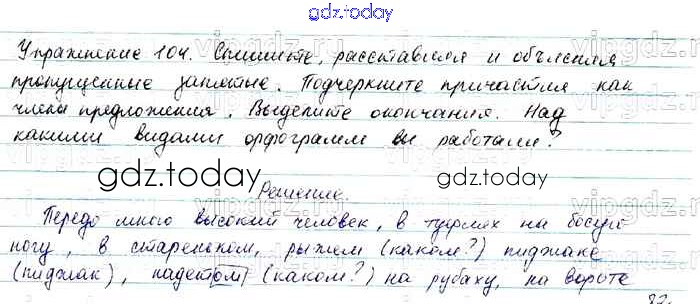 gdz.today
Упражнение 104. Спишите, расставляя и объясняя
пропущенные запятые. Подчеркните причастия как
члены предложения. Выделите окончания. Над
какими видами орфограмм вы работали?
gdz.today
gdz.today
Решение
Передо мною высокий человек, в туфлях на босую
ногу, в стареньком, рыжем (каком?) пиджаке
(пиджак), надетом (каком?) на рубаху, на вороте